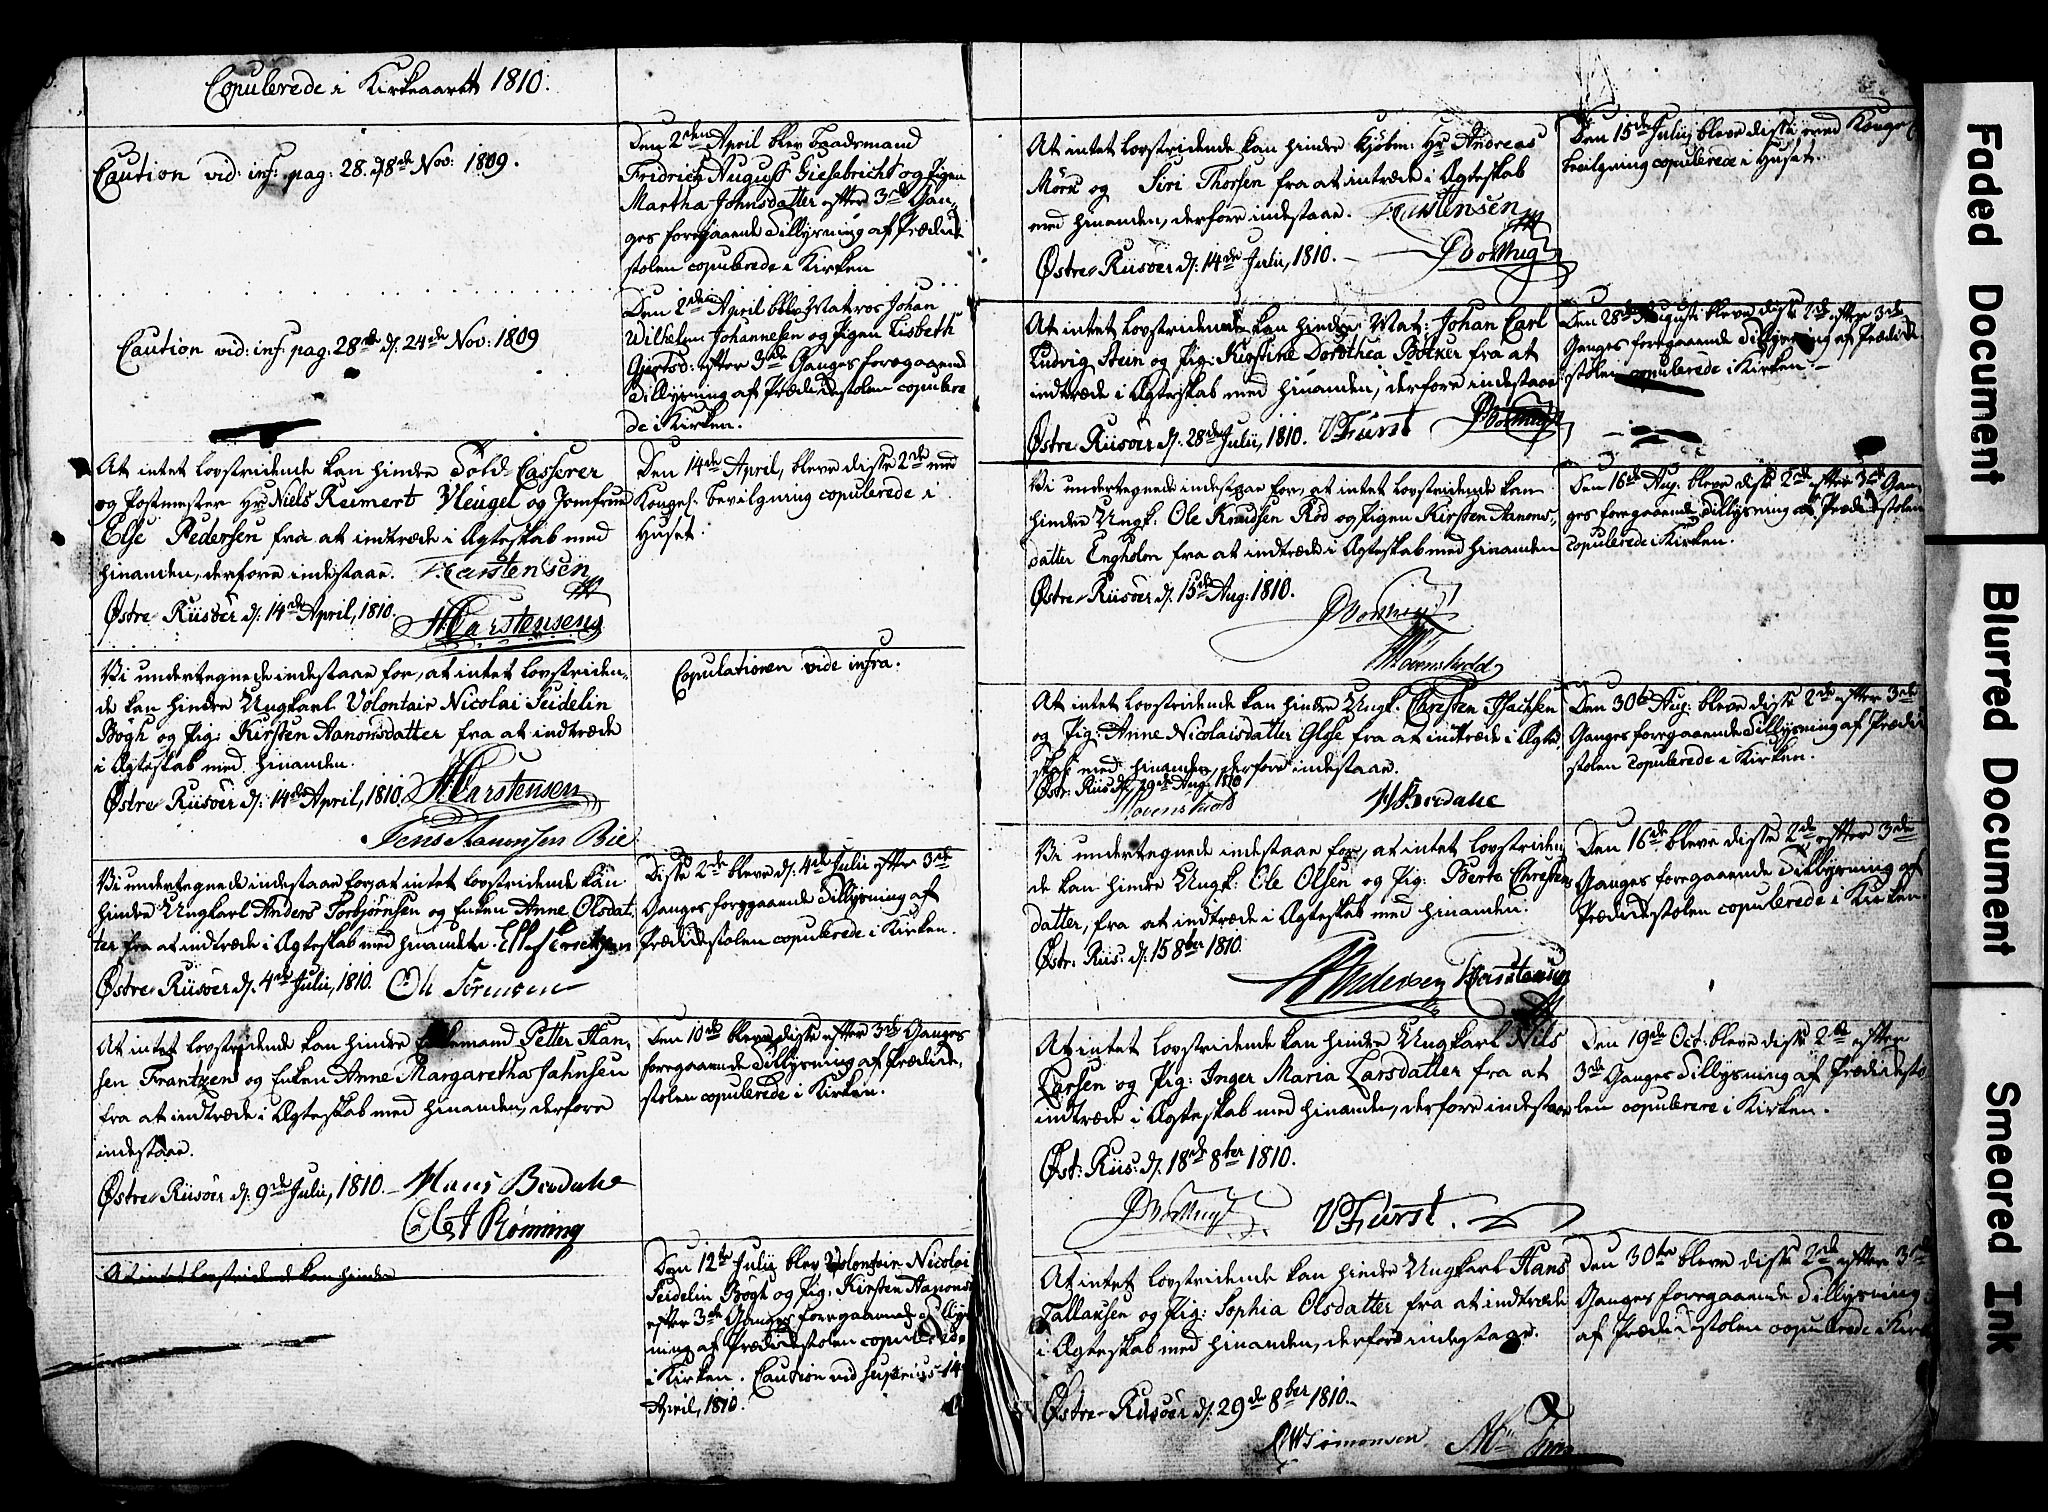 Copulerede i Kirkeaaret 1810.
Caution vid: inf: pag: 28. d. 8de Nov: 1809.
Den 2den April blev Traadsmand
Fridrich August Giesebricht og Pigen
Martha Johnsdatter efter 3de Gan-
ges foregaaende Tillysning af Prædike
stolen copulerede i Kirken
Caution vid: inf: pag: 28de d. 24de Nov: 1809
Den 2den April blev Matros Johan
Wilhelm Johannesen og Pigen Lisbeth
Giertsd: efter 3de Ganges foregaaende
Tillysning af Prædikestolen copulere
de i Kirken.
At intet lovstridende kan hindre Told Casserer
og Postmester Hr Niels Reimert Vleugel og Jomfrue
Else Pedersen fra at indtræde i Ægteskab med
hinanden, derfore indestaae. T. Carstensen
Østre Riisöer d. 14de April, 1810. H Carstensen
Den 14de April, bleve disse 2de med
Kongel: bevilgning copulerede i
Huset.
Vi undertegnede indestaae for, at intet lovstriden-
de kan hindre Ungkarl Volontair Nicolai Seidelin
Bögh og Pig: Kirsten Aanonsdatter fra at indtræde
i Ægteskab med hinanden.
Østre Riisöer d. 14de April, 1810. H Carstensen
Jens Aanonsen Bie
Copulationen vide infra.
Vi undertegnede indestaae for, at intet lovstridende kan
hindre Ungkarl Anders Torbjörnsen og Enken Anne Olsdat-
ter fra at indtræde i Ægteskab med hinanden.
Østre Riisöer d. 4de Julii, 1810. Ole Sörensen
Disse 2de bleve d. 4de Julii efter 3de
Ganges foregaaende Tillysning af
Prædikestolen copulerede i Kirken.
At intet lovstridende kan hindre Enkemand Petter Han-
sen Frantzen og Enken Anne Margaretha Jahnsen
fra at indtræde i Ægteskab med hinanden, derfore
indestaae.
Østre Riisöer d. 9de Julii, 1810. Hans Brodahe
Ole J Rönning
Den 10de bleve disse efter 3de Ganges
foregaaende Tillysning af Prædike-
stolen copulerede i Kirken.
At intet lovstridende kan hindre
Den 12te Julij blev Volontair Nicolai
Seidelin Bögh og Pig. Kirsten Aanonsd
efter 3de Ganges foregaaende Tillys
ning af Prædikestolen copulerede
i Kirken. Caution vid superius 14
April, 1810.
At intet lovstridende kan hindre Kjöbm: Hr Andreas
Mörk og Siri Thorsen fra at intræde i Ægteskab
med hinanden, derfore indestaae. T Carstensen
Østre Riisöer d. 14de Julii, 1810.
Den 15de Julij bleve disse med Konge
bevilgning copulerede i Huset.
At intet lovstridende kan hindre Mat: Johan Carl
Ludvig Stein og Pig: Kirstine Dorothea Bölker fra at
indtræde i Ægteskab med hinanden, derfore indestaae
Østre Riisöer d. 28de Julii, 1810. V Fürst
Den 28de Augusti bleve disse 2de efter 3de
Ganges foregaaende Tillysning af Prædike
stolen copulerede i Kirken.
Vi undertegnede indestaae for, at intet lovstridende kan
hindre Ungk: Ole Knudsen Röd og Pigen Kirsten Aanons-
datter Engholm fra at indtræde i Ægteskab med hinanden
Østre Riisöer d. 15de Aug: 1810.
Den 16de Aug: bleve disse 2de efter 3de Gan
ges foregaaende Tillysning af Prædikestolen
copulerede i Kirken.
At intet lovstridende kan hindre Ungk: Christen Isachsen
og Pig: Anne Nicolaisdatter Glße fra at indtræde i Ægte
skab med hinanden, derfore indestaae.
Østr: Riis d. 29de Aug: 1810
H Brodahe
Den 30te Aug: bleve disse 2de efter 3de
Ganges foregaaende Tillysning af Prædike
stolen copulerede i Kirken.
Vi undertegnede indestaae for, at intet lovstriden
de kan hindre Ungk: Ole Olsen og Pig: Berte Christens
datter, fra at indtræde i Ægteskab med hinanden.
Østr: Riis: d. 15 8ber 1810.
Andersen T Carstensen
Den 16de bleve disse 2de efter 3de
Ganges foregaaende Tillysning af
Prædikestolen copulerede i Kirken
At intet lovstridende kan hindre Ungkarl Nils
Larsen og Pig: Inger Maria Larsdatter fra at
indtræde i Ægteskab med hinanden, derfore indestaae
Øst: Riis: d. 18de 8ber 1810.
V Fürst.
Den 19de Oct: bleve disse 2de efter
3de Ganges Tillysning af Prædikesto
len copulerere i Kirken.
At intet lovstridende kan hindre Ungkarl Hans
Tallaksen og Pig: Sophia Olsdatter fra at indtræde
i Ægteskab med hinanden, derfore indestaae.
Østre Riisöer d. 29de 8ber 1810.
Simonsen
Den 30te bleve disse 2de efter 3de
Ganges foregaaende Tillysning
af Prædikestolen copulerede i Kirk
Faded Document
Blurred Document
Smeared Ink